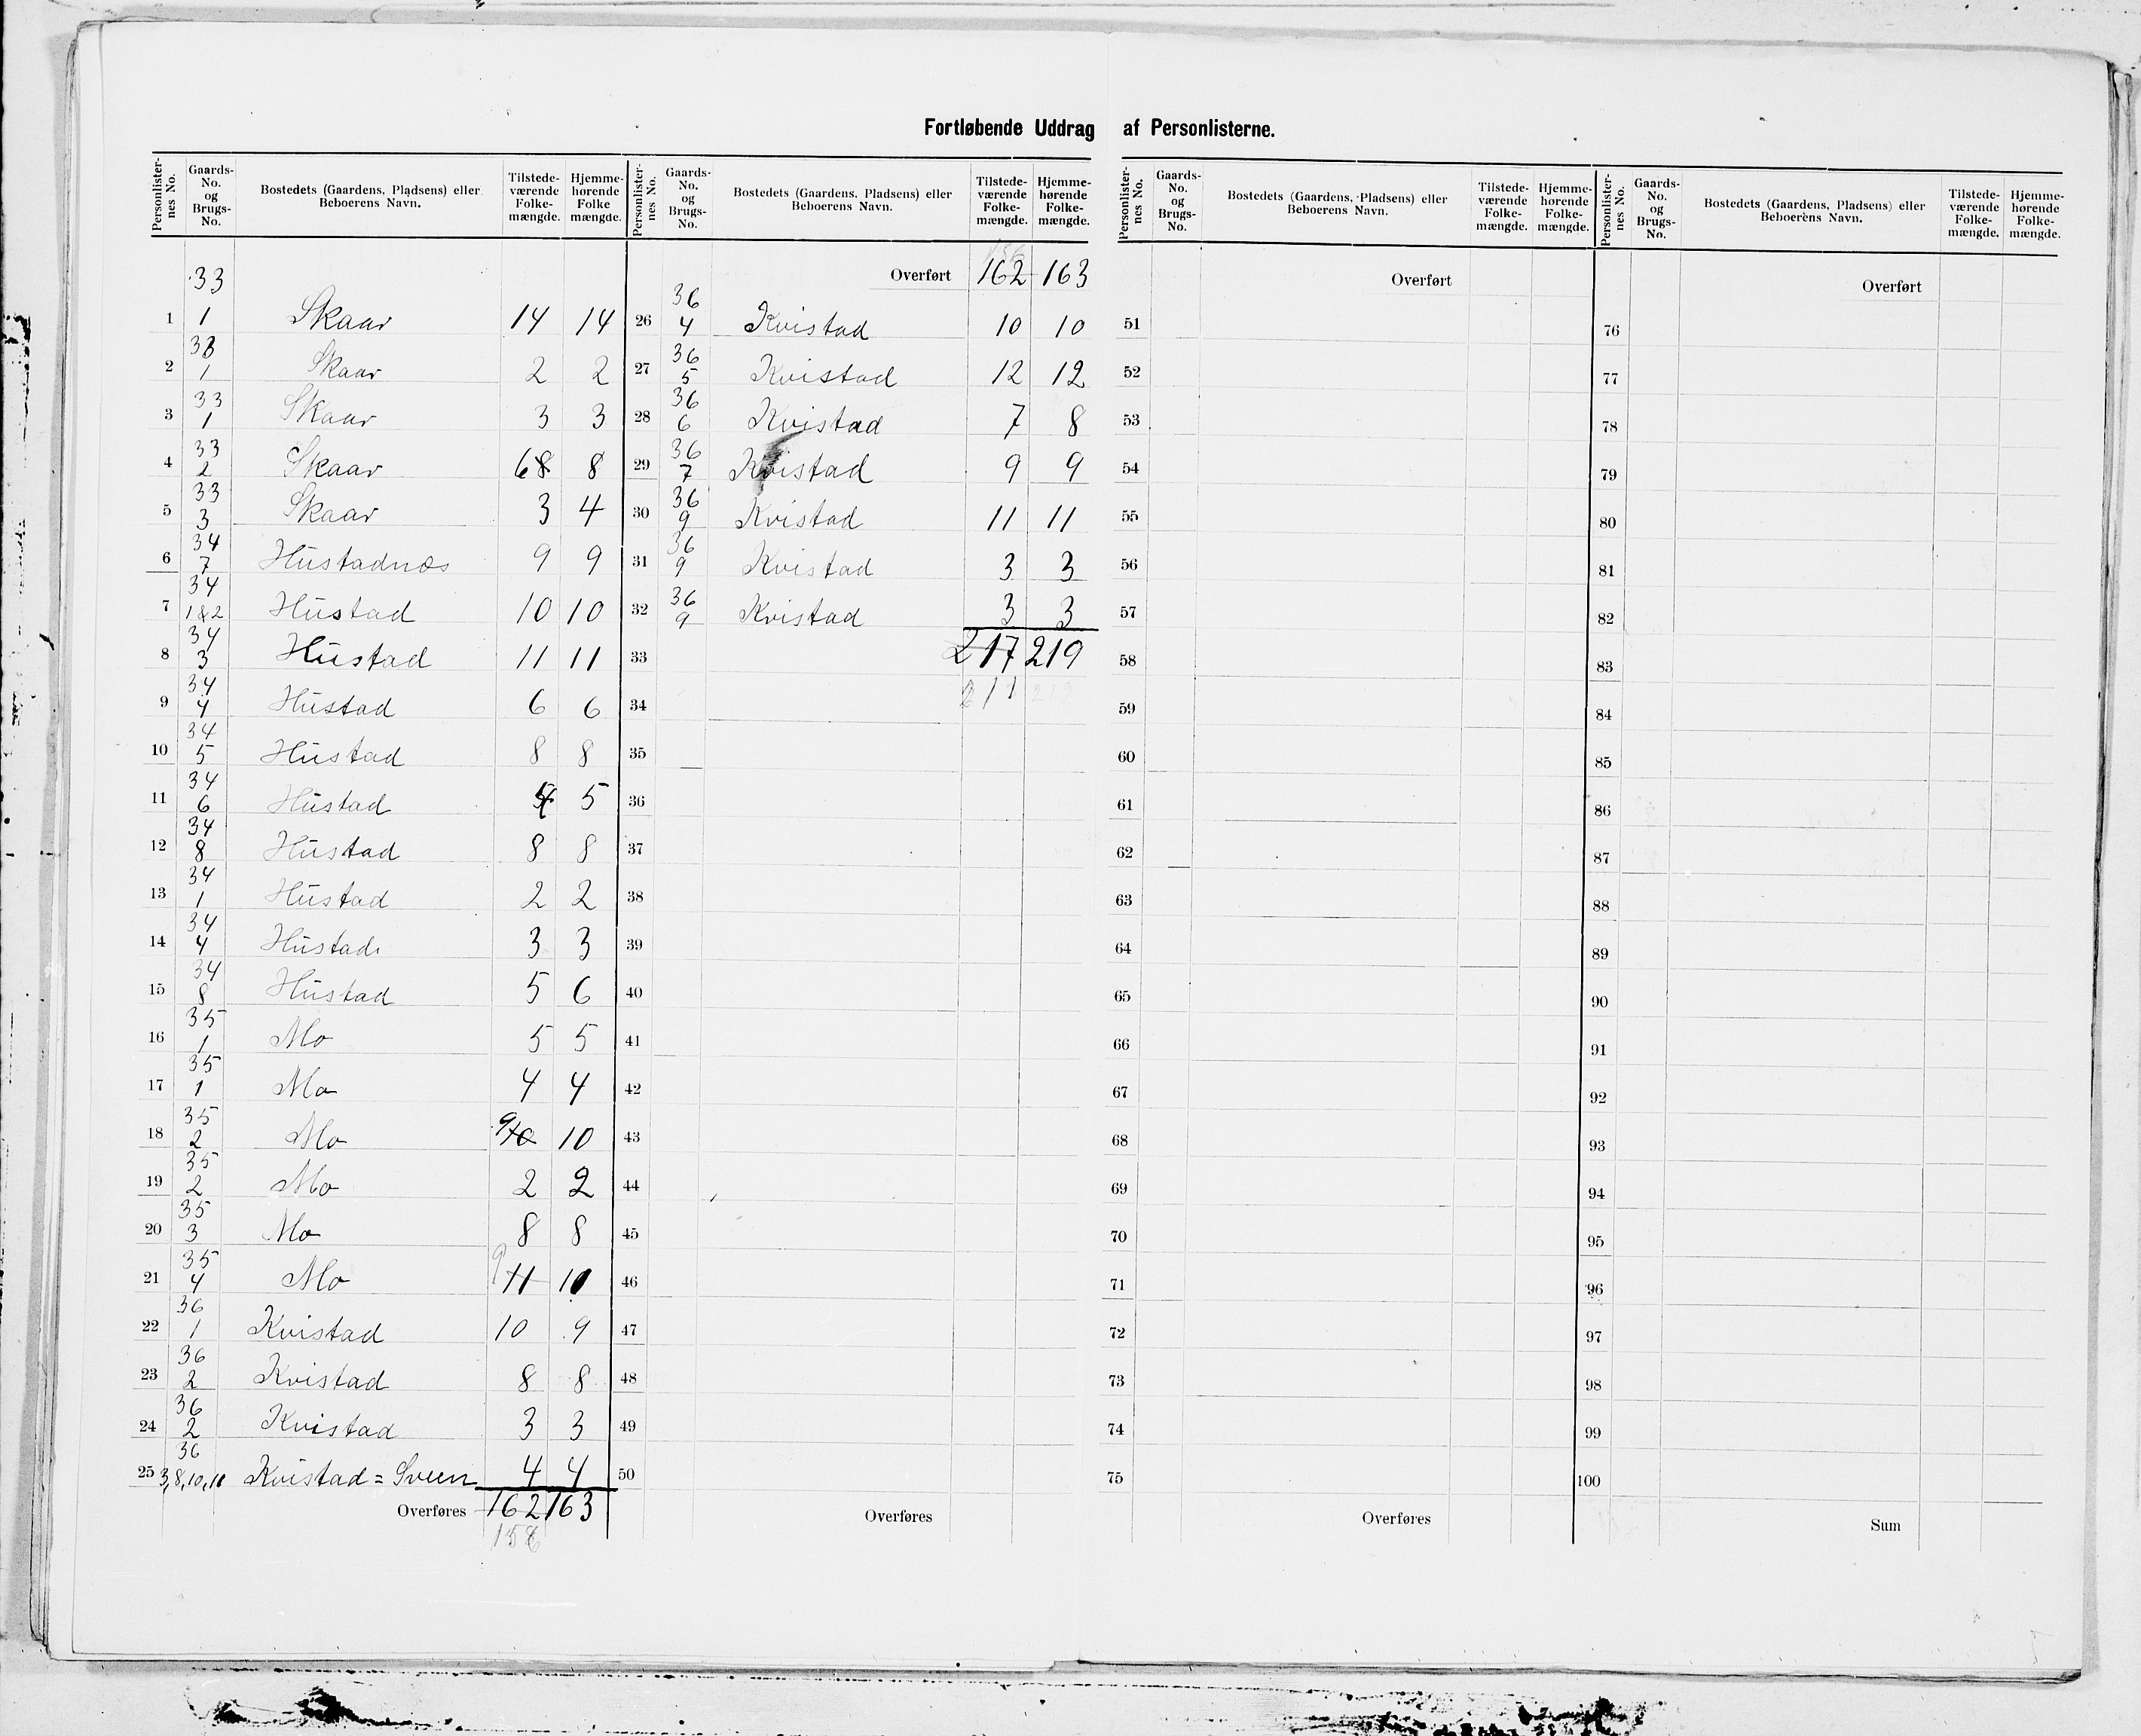 Fortløbende Uddrag af Personlisterne.
Personlister-nes No. | Gaards-No. og Brugs-No. | Bostedets (Gaardens, Pladsens) eller Beboerens Navn. | Tilstede-værende Folke-mængde. | Hjemme-hørende Folke mængde.
1 | 33 1 | Skaar | 14 | 14
2 | 33 1 | Skaar | 2 | 2
3 | 33 1 | Skaar | 3 | 3
4 | 33 2 | Skaar | 6 8 | 8
5 | 33 3 | Skaar | 3 | 4
6 | 34 7 | Hustadnæs | 9 | 9
7 | 34 1&2 | Hustad | 10 | 10
8 | 34 3 | Hustad | 11 | 11
9 | 34 4 | Hustad | 6 | 6
10 | 34 5 | Hustad | 8 | 8
11 | 34 6 | Hustad | 4 | 5
12 | 34 8 | Hustad | 8 | 8
13 | 34 1 | Hustad | 2 | 2
14 | 34 4 | Hustad | 3 | 3
15 | 34 8 | Hustad | 5 | 6
16 | 35 1 | Mo | 5 | 5
17 | 35 1 | Mo | 4 | 4
18 | 35 2 | Mo | 9 10 | 10
19 | 35 2 | Mo | 2 | 2
20 | 35 3 | Mo | 8 | 8
21 | 35 4 | Mo | 9 11 | 10
22 | 36 1 | Kvistad | 10 | 9
23 | 36 2 | Kvistad | 8 | 8
24 | 36 2 | Kvistad | 3 | 3
25 | 36 3,8,10,11 | Kvistad = Sveen | 4 | 4
Overføres | 162 | 163
156
Personlister-nes No. | Gaards-No. og Brugs-No. | Bostedets (Gaardens, Pladsens) eller Beboerens Navn. | Tilstede-værende Folke-mængde. | Hjemme-hørende Folke-mængde.
156
Overført | 162 | 163
26 | 36 4 | Kvistad | 10 | 10
27 | 36 5 | Kvistad | 12 | 12
28 | 36 6 | Kvistad | 7 | 8
29 | 36 7 | Kvistad | 9 | 9
30 | 36 9 | Kvistad | 11 | 11
31 | 36 9 | Kvistad | 3 | 3
32 | 36 9 | Kvistad | 3 | 3
33 | 217 | 219
34 | 211 | 213
35
36
37
38
39
40
41
42
43
44
45
46
47
48
49
50
Overføres
Personlister-nes No. | Gaards-No. og Brugs-No. | Bostedets (Gaardens, Pladsens) eller Beboerens Navn. | Tilstede-værende Folke-mængde. | Hjemme-hørende Folke-mængde.
Overført
51
52
53
54
55
56
57
58
59
60
61
62
63
64
65
66
67
68
69
70
71
72
73
74
75
Overføres
Personlister-nes No. | Gaards-No. og Brugs-No. | Bostedets (Gaardens, Pladsens) eller Beboerens Navn. | Tilstede-værende Folke-mængde. | Hjemme-hørende Folke-mængde.
Overført
76
77
78
79
80
81
82
83
84
85
86
87
88
89
90
91
92
93
94
95
96
97
98
99
100
Sum